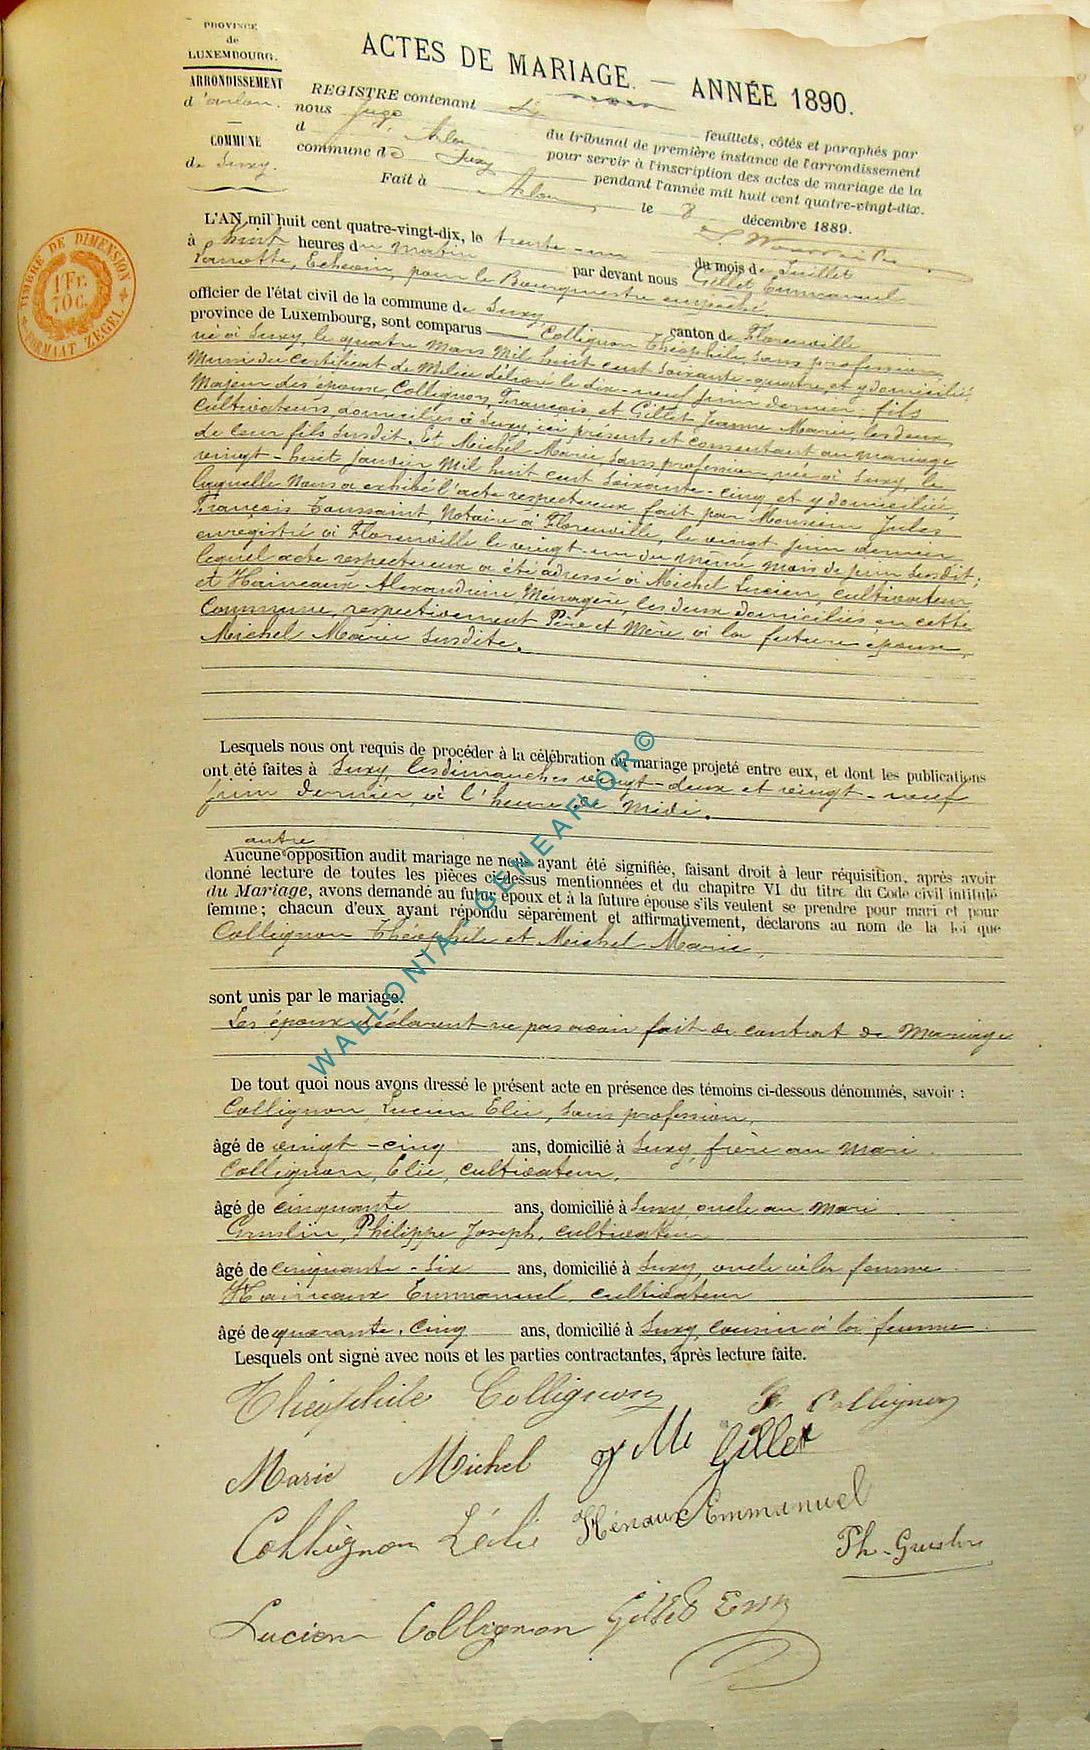 PROVINCE
de
LUXEMBOURG.
ARRONDISSEMENT
d'Arlon.
COMMUNE
de Suxy.
TIMBRE DE DIMENSION
1 Fr.
70 c.
FORMAAT ZEGEL
ACTES DE MARIAGE. — ANNÉE 1890.
REGISTRE contenant Six feuillets, côtés et paraphés par
nous Juge du tribunal de première instance de l'arrondissement
d'Arlon pour servir à l'inscription des actes de mariage de la
commune de Suxy pendant l'année mil huit cent quatre-vingt-dix.
Fait à Arlon le 8 décembre 1889.
L'AN mil huit cent quatre-vingt-dix, le trente-un du mois de Juillet
à huit heures du matin par devant nous Gillet Emmanuel
Echevin, pour le Bourgmestre empêché
officier de l'état civil de la commune de Suxy canton de Florenville
province de Luxembourg, sont comparus Collignon Théophile, sans profession,
né à Suxy, le quatre Mars Mil huit cent soixante-quatre, et y domicilié,
Muni du Certificat de Milice délivré le dix-neuf Juin dernier, fils
Majeur des époux, Collignon, François et Gillet Jeanne Marie, les deux
cultivateurs, domiciliés à Suxy, ici présents et consentant au mariage
de leur fils susdit. Et Michel Marie, sans profession, née à Suxy, le
vingt-huit Janvier Mil huit cent soixante-cinq et y domiciliée,
laquelle Nous a exhibé l'acte respectueux fait par Monsieur Jules
François Toussaint, Notaire à Florenville, le vingt Juin dernier
enregistré à Florenville le vingt-un du même mois de Juin susdit;
lequel acte respectueux a été adressé à Michel Lucien, cultivateur,
et Haineaux Alexandrine, Ménagère, les deux domiciliés en cette
Commune, respectivement Père et Mère à la future épouse,
Michel Marie susdite.
Lesquels nous ont requis de procéder à la célébration du mariage projeté entre eux, et dont les publications
ont été faites à Suxy, les dimanches vingt-deux et vingt-neuf
Juin dernier, à l'heure de midi.
autre
Aucune opposition audit mariage ne nous ayant été signifiée, faisant droit à leur réquisition, après avoir
donné lecture de toutes les pièces ci-dessus mentionnées et du chapitre VI du titre du Code civil intitulé
du Mariage, avons demandé au futur époux et à la future épouse s'ils veulent se prendre pour mari et pour
femme; chacun d'eux ayant répondu séparément et affirmativement, déclarons au nom de la loi que
Collignon Théophile et Michel Marie,
sont unis par le mariage.
Les époux déclarent ne pas avoir fait de contrat de Mariage
De tout quoi nous avons dressé le présent acte en présence des témoins ci-dessous dénommés, savoir :
Collignon Lucien Elie, sans profession,
âgé de vingt-cinq ans, domicilié à Suxy, frère au mari.
Collignon, Elie, cultivateur,
âgé de cinquante ans, domicilié à Suxy, oncle au mari.
Guslin, Philippe Joseph, cultivateur
âgé de cinquante-six ans, domicilié à Suxy, oncle à la femme
Haineaux Emmanuel, cultivateur
âgé de quarante-cinq ans, domicilié à Suxy, cousin à la femme.
Lesquels ont signé avec nous et les parties contractantes, après lecture faite.
Théophile Collignon F. Collignon
Marie Michel J M Gillet
Collignon Lélie Hénaux Emmanuel
Ph. Guslin
Lucien Collignon Gillet Em
WALLONIA - GENEAFLOR©